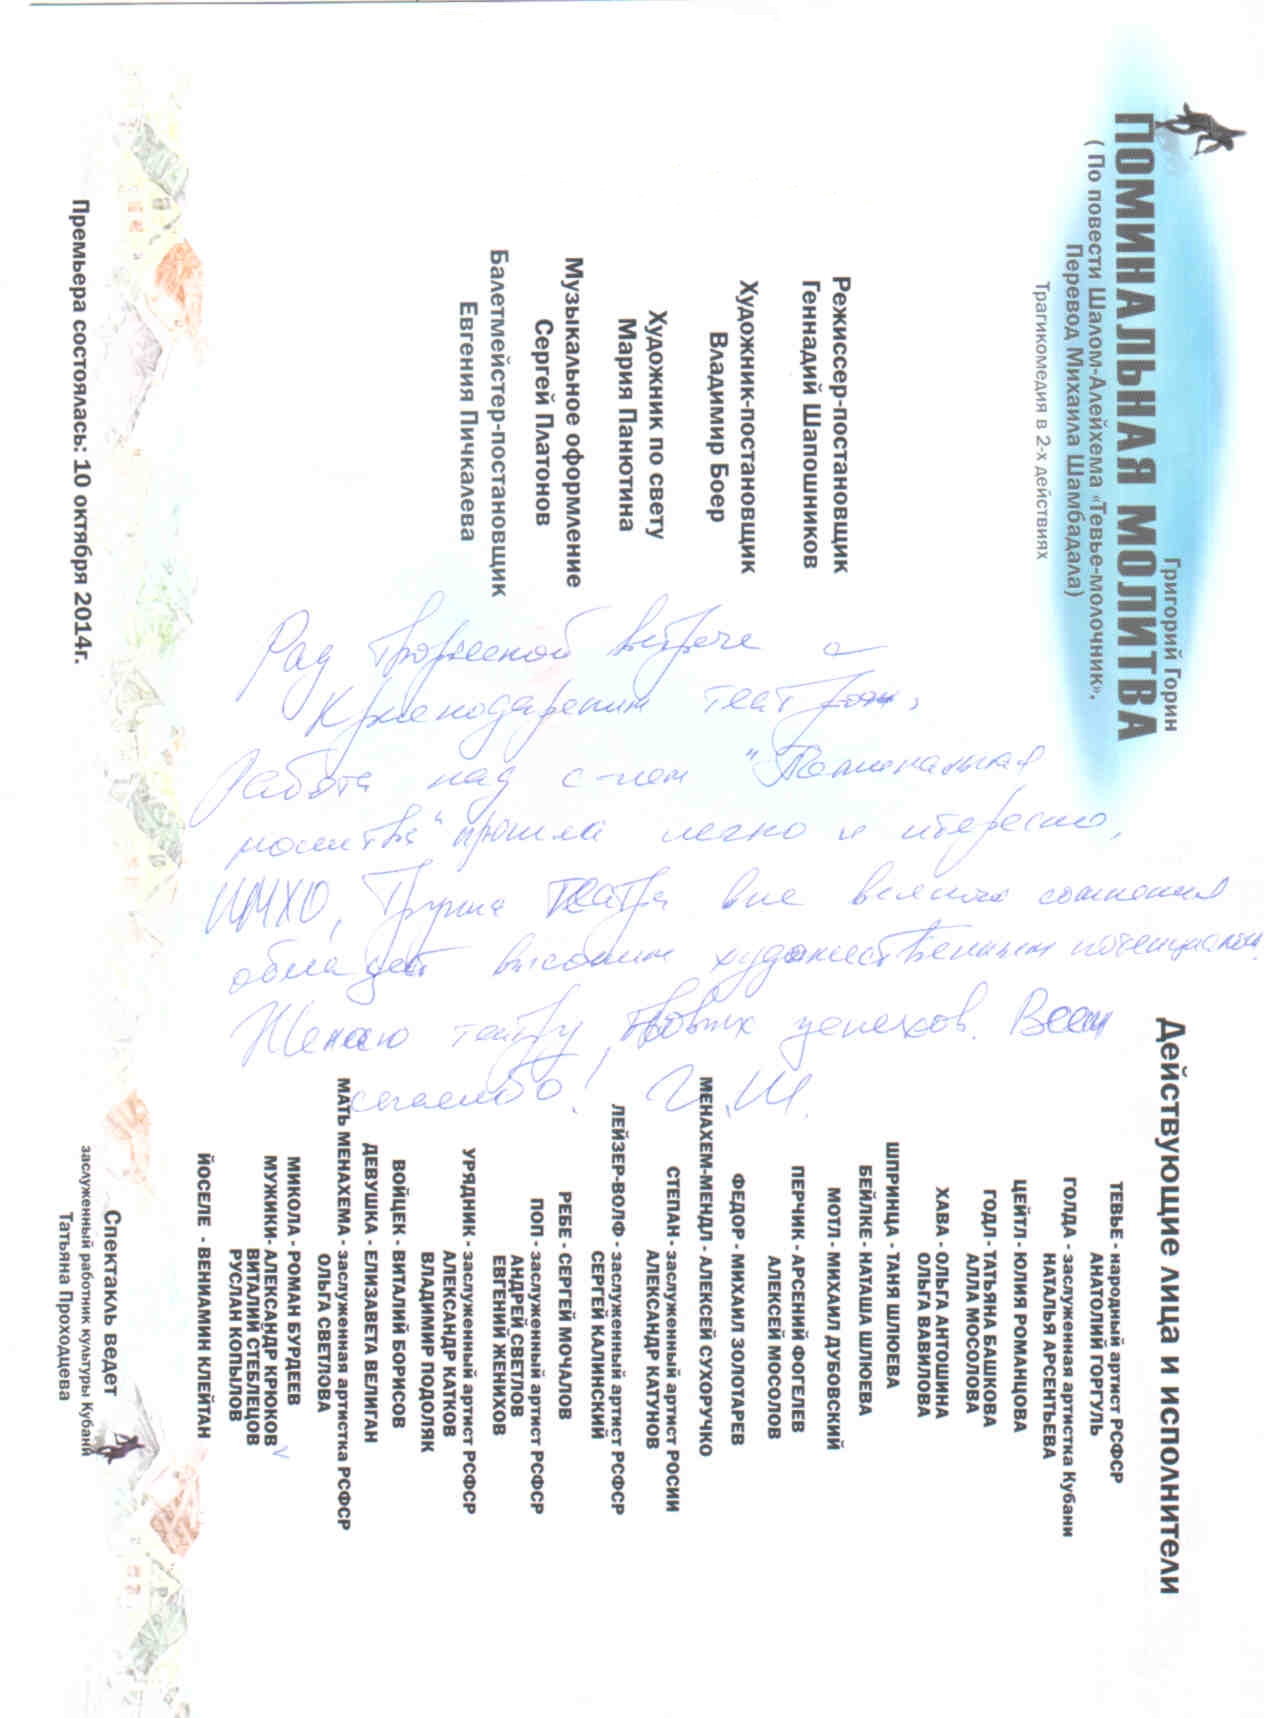 Григорий Горин
ПОМИНАЛЬНАЯ МОЛИТВА
( По повести Шалом-Алейхема «Тевье-молочник».
Перевод Михаила Шамбадала)
Трагикомедия в 2-х действиях
Режиссер-постановщик
Геннадий Шапошников
Художник-постановщик
Владимир Боер
Художник по свету
Мария Панютина
Музыкальное оформление
Сергей Платонов
Балетмейстер-постановщик
Евгения Пичкалева
Премьера состоялась: 10 октября 2014г.
Рад творческой встрече с
Краснодарским театром.
Работа над с-лем "Поминальная
молитва" прошла легко и нтересно,
ИМХО, Труппа театра вне всякого сомнения
обладает высоким художественным потенциалом.
Желаю театру новых успехов. Всем
спасибо! Г.Ш.
Действующие лица и исполнители
ТЕВЬЕ - народный артист РСФСР
АНАТОЛИЙ ГОРГУЛЬ
ГОЛДА - заслуженная артистка Кубани
НАТАЛЬЯ АРСЕНТЬЕВА
ЦЕЙТЛ - ЮЛИЯ РОМАНЦОВА
ГОДЛ - ТАТЬЯНА БАШКОВА
АЛЛА МОСОЛОВА
ХАВА - ОЛЬГА АНТОШИНА
ОЛЬГА ВАВИЛОВА
ШПРИНЦА - ТАНЯ ШЛЮЕВА
БЕЙЛКЕ - НАТАША ШЛЮЕВА
МОТЛ - МИХАИЛ ДУБОВСКИЙ
ПЕРЧИК - АРСЕНИЙ ФОГЕЛЕВ
АЛЕКСЕЙ МОСОЛОВ
ФЕДОР - МИХАИЛ ЗОЛОТАРЕВ
МЕНАХЕМ-МЕНДЛ - АЛЕКСЕЙ СУХОРУЧКО
СТЕПАН - заслуженный артист РОСИИ
АЛЕКСАНДР КАТУНОВ
ЛЕЙЗЕР-ВОЛФ - заслуженный артист РСФСР
СЕРГЕЙ КАЛИНСКИЙ
РЕБЕ - СЕРГЕЙ МОЧАЛОВ
ПОП - заслуженный артист РСФСР
АНДРЕЙ СВЕТЛОВ
ЕВГЕНИЙ ЖЕНИХОВ
УРЯДНИК - заслуженный артист РСФСР
АЛЕКСАНДР КАТКОВ
ВЛАДИМИР ПОДОЛЯК
ВОЙЦЕК - ВИТАЛИЙ БОРИСОВ
ДЕВУШКА - ЕЛИЗАВЕТА ВЕЛИГАН
МАТЬ МЕНАХЕМА - заслуженная артистка РСФСР
ОЛЬГА СВЕТЛОВА
МИКОЛА - РОМАН БУРДЕЕВ
МУЖИКИ- АЛЕКСАНДР КРЮКОВ
ВИТАЛИЙ СТЕБЛЕЦОВ
РУСЛАН КОПЫЛОВ
ЙОСЕЛЕ - ВЕНИАМИН КЛЕЙТАН
Спектакль ведет
заслуженный работник культуры Кубани
Татьяна Проходцева